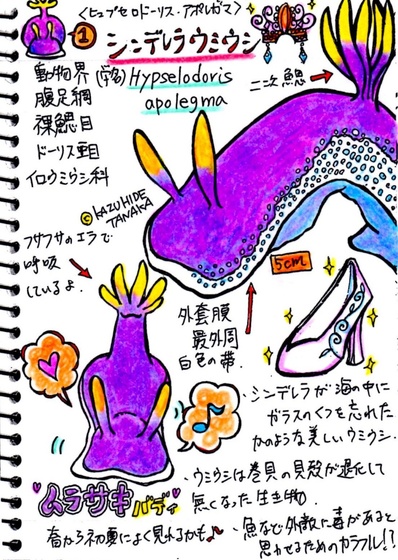 〈ヒュプセロドーリス・アポレガマ〉
① シンデレラウミウシ
動物界
腹足綱
裸鰓目
ドーリス亜目
イロウミウシ科
(学名) Hypselodoris
apolegma
二次鰓
© KAZUHIDE
TANAKA
フサフサのエラで
呼吸
しているよ.
5cm
外套膜
最外周
白色の帯.
・シンデレラが海の中に
ガラスのくつを忘れた
かのような美しいウミウシ.
ムラサキボディ
・ウミウシは巻貝の貝殻が退化して
無くなった生き物.
春から初夏によく見れるかも♪
・魚など外敵に毒があると
思わせるためのカラフル!?